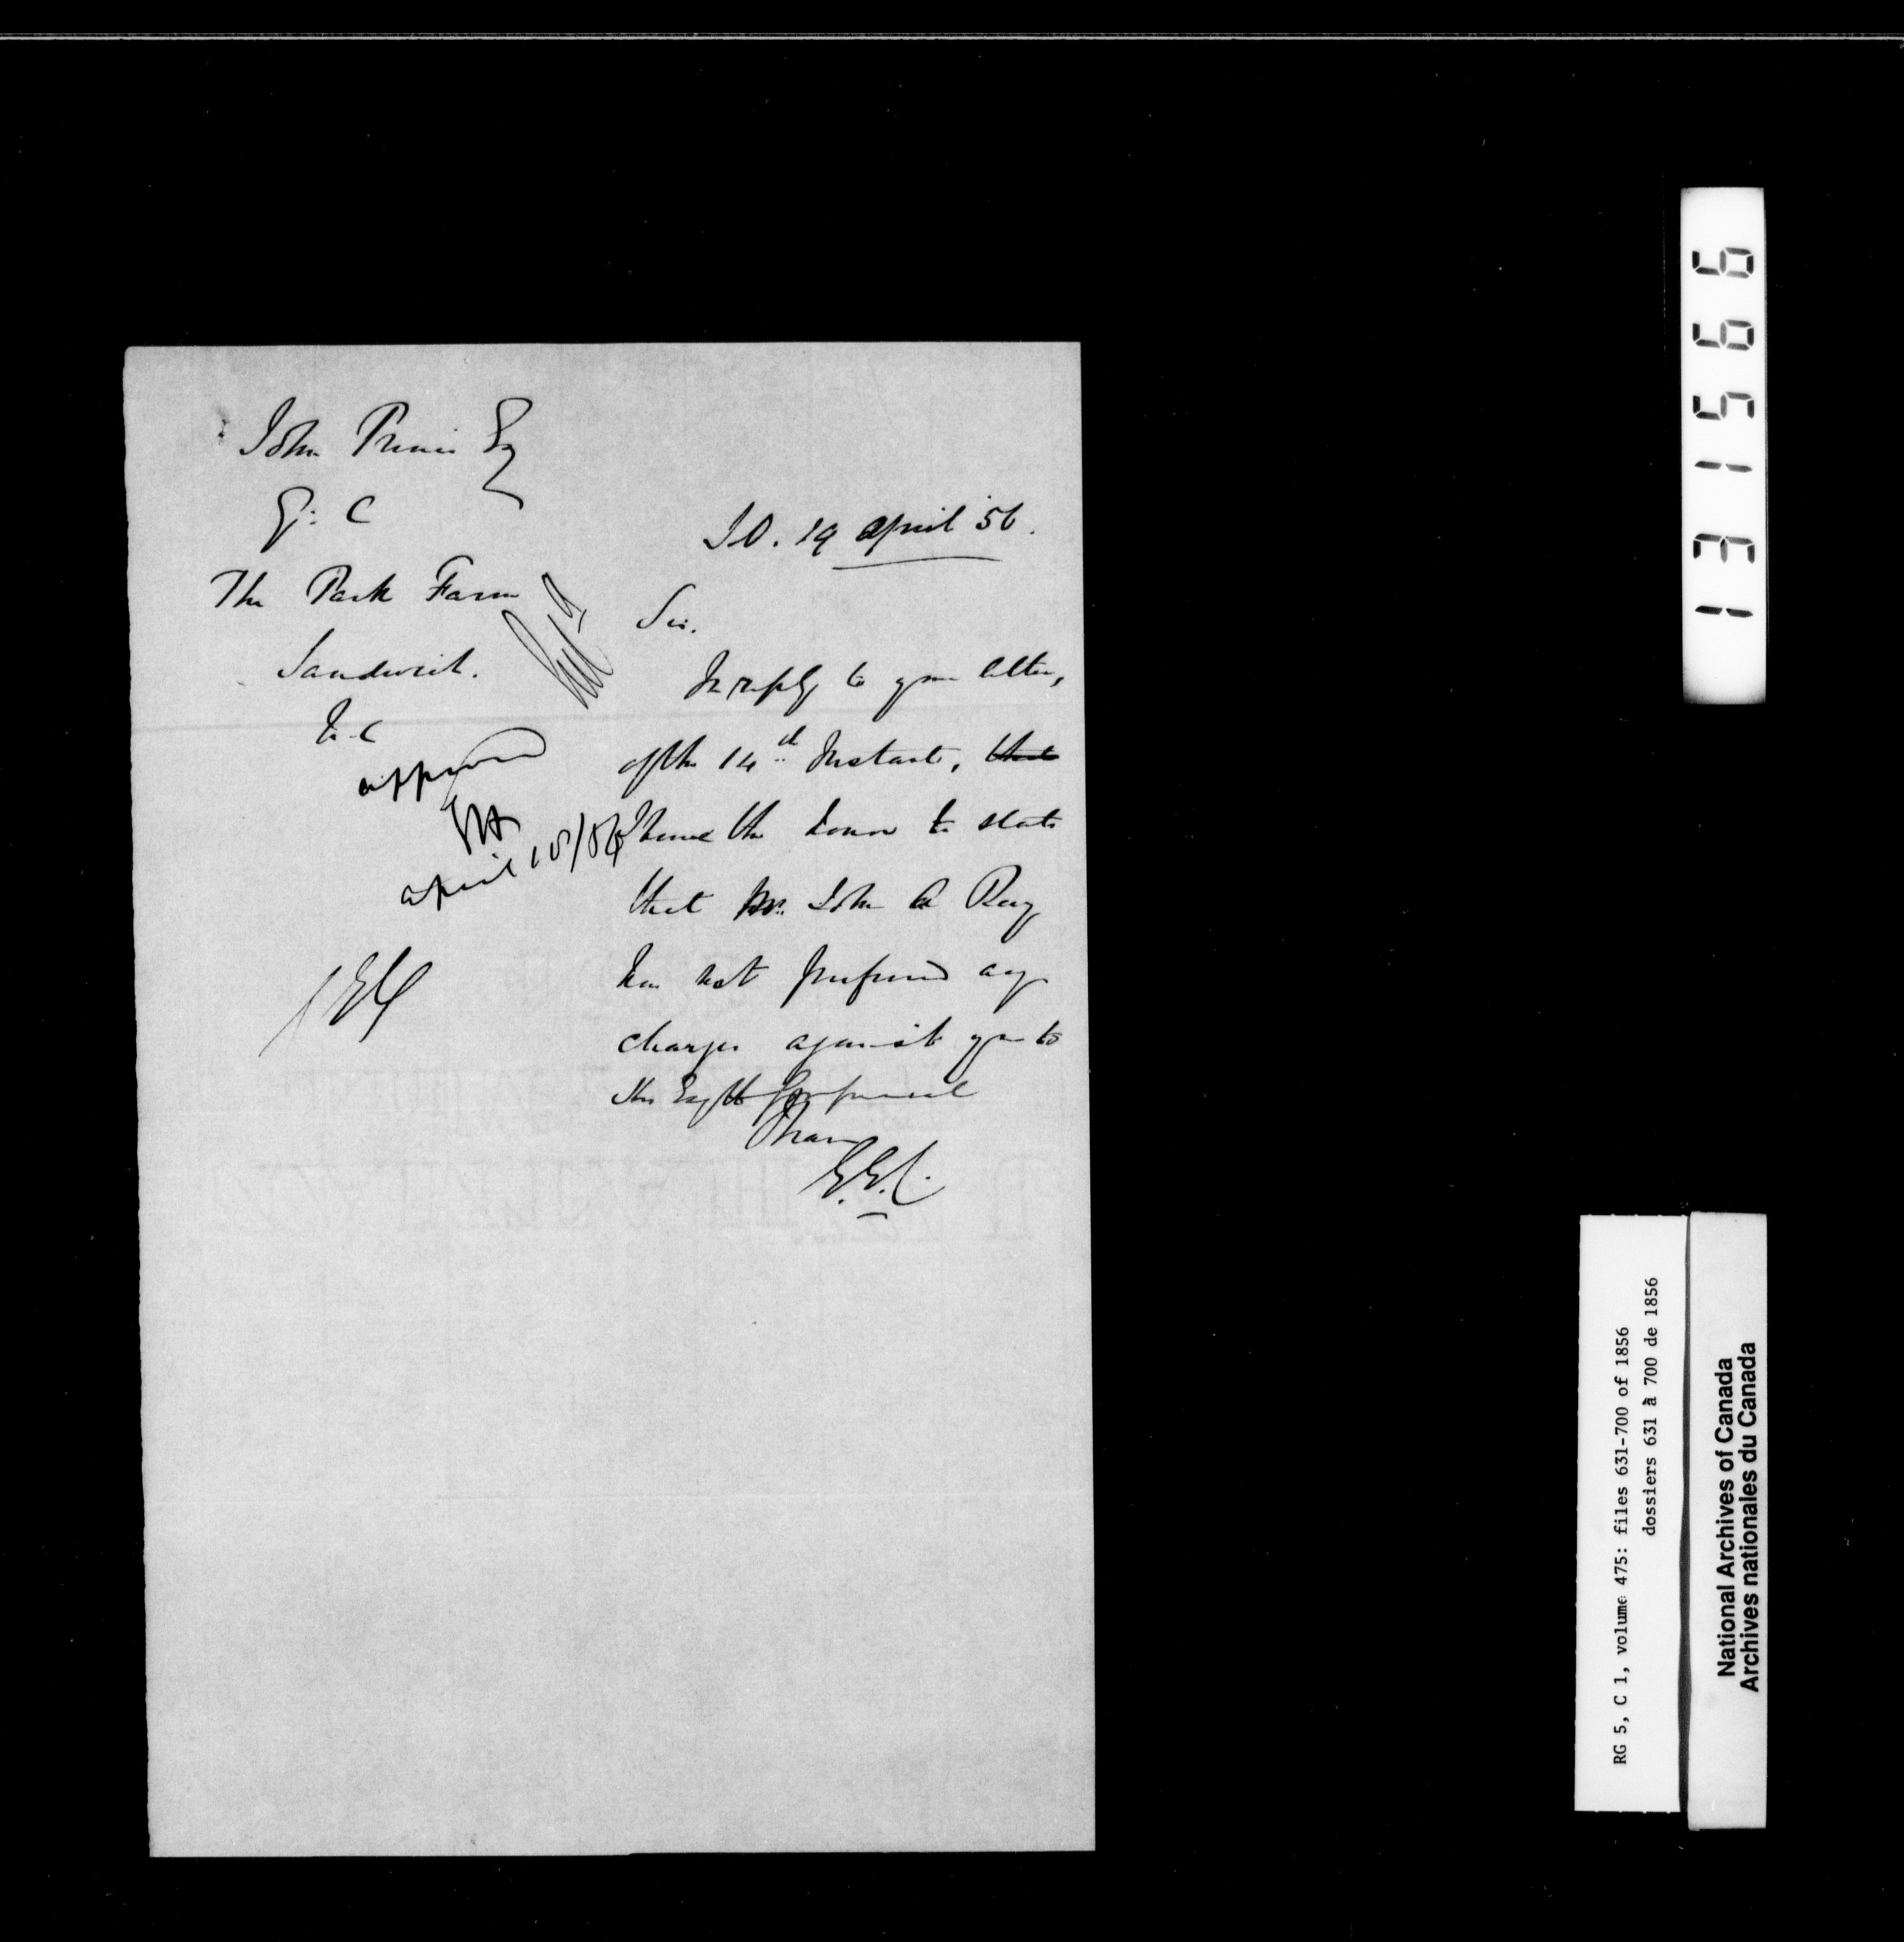 John Prince Esq
Q: C
The Park Farm
Sandwich.
approved
April 18/56
19 April 56.
Sir.
In reply to your letter,
of the 14th Instant, that
I have the honor to state
that Mr. John A Ray
has not preferred any
charges against you to
His Exy the Gov General
I have
E.E.C.
131566
RG 5, C 1, volume 475: files 631-700 of 1856
dossiers 631 à 700 de 1856
National Archives of Canada
Archives nationales du Canada